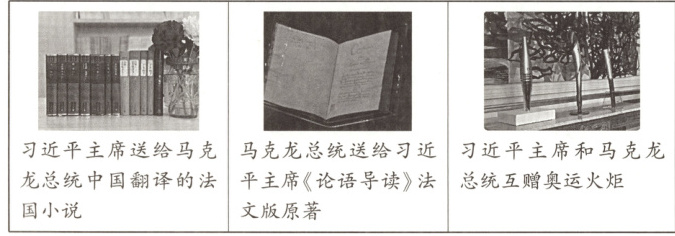 习近平主席送给马克
龙总统中国翻译的法
国小说
马克龙总统送给习近
平主席《论语导读》法
文版原著
习近平主席和马克龙
总统互赠奥运火炬